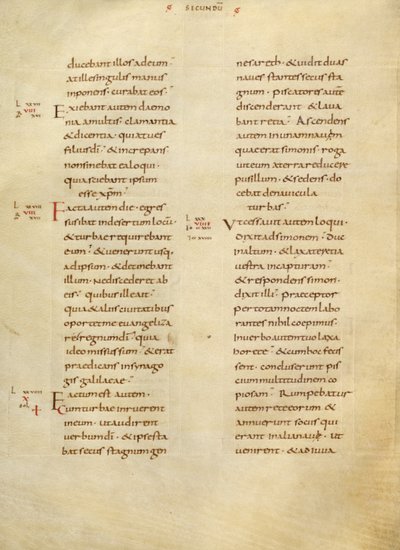 SECUNDŪ
ducebant illos ad eum.
at ille singulis manus
inponens. curabat eos.
Exiebant autem daemo
nia a multis. clamantia
& dicentia. quia tu es
filius dī. & increpans
non sinebat ea loqui.
quia sciebant ipsum
esse xpm.
Facta autem die. egres
sus ibat in desertum locū.
& turbae requirebant
eum. & venerunt usq.
ad ipsum. & detinebant
illum. ne discederet ab
eis. quibus ille ait.
quia & aliis civitatibus
oportet me euangeliza
re regnum dī. quia
ideo missus sum. & erat
praedicans in synago
gis galilaeae.
Factum est autem.
Cum turbae inruerent
in eum. ut audirent
verbum dī. & ipse sta
bat secus stagnum gen
nesareth. & vidit duas
naves stantes secus sta
gnum. piscatores autē
discenderant. & lava
bant retia. Ascendens
autem in unam navem
quae erat simonis. roga
vit eum a terra reducere
pusillum. & sedens. do
cebat de navicula
turbas.
Ut cessavit autem loqui.
dixit ad simonem. Duc
in altum. & laxate retia
vestra in capturam.
& respondens simon.
dixit illi. Praeceptor
per totam noctem labo
rantes nihil coepimus.
In verbo autem tuo laxa
bo rete. & cum hoc fecis
sent. concluserunt pis
cium multitudinem co
piosam. Rumpebatur
autem rete eorum. &
annuerunt sociis qui
erant in alia navi. ut
venirent. & adiuva